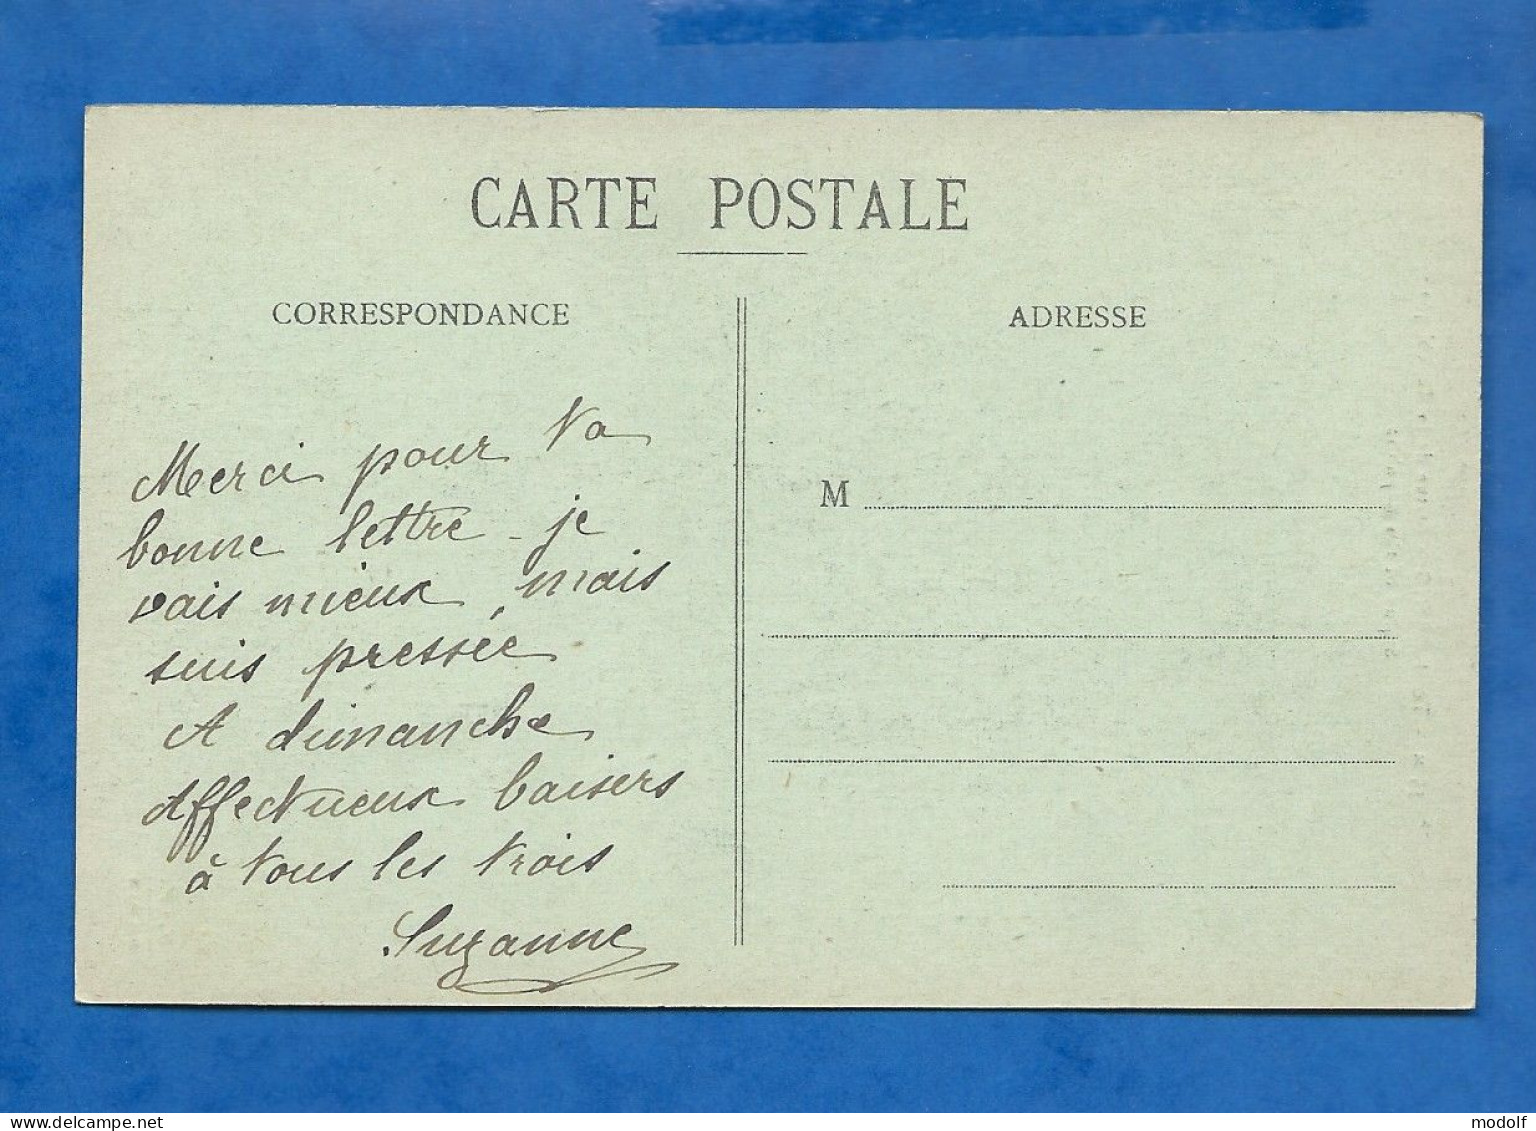 CARTE POSTALE
CORRESPONDANCE
ADRESSE
Merci pour ta
bonne lettre - je
vais mieux, mais
suis pressée
A dimanche
Affectueux baisers
à tous les trois
Suzanne
M
www.delcampe.net
modolf